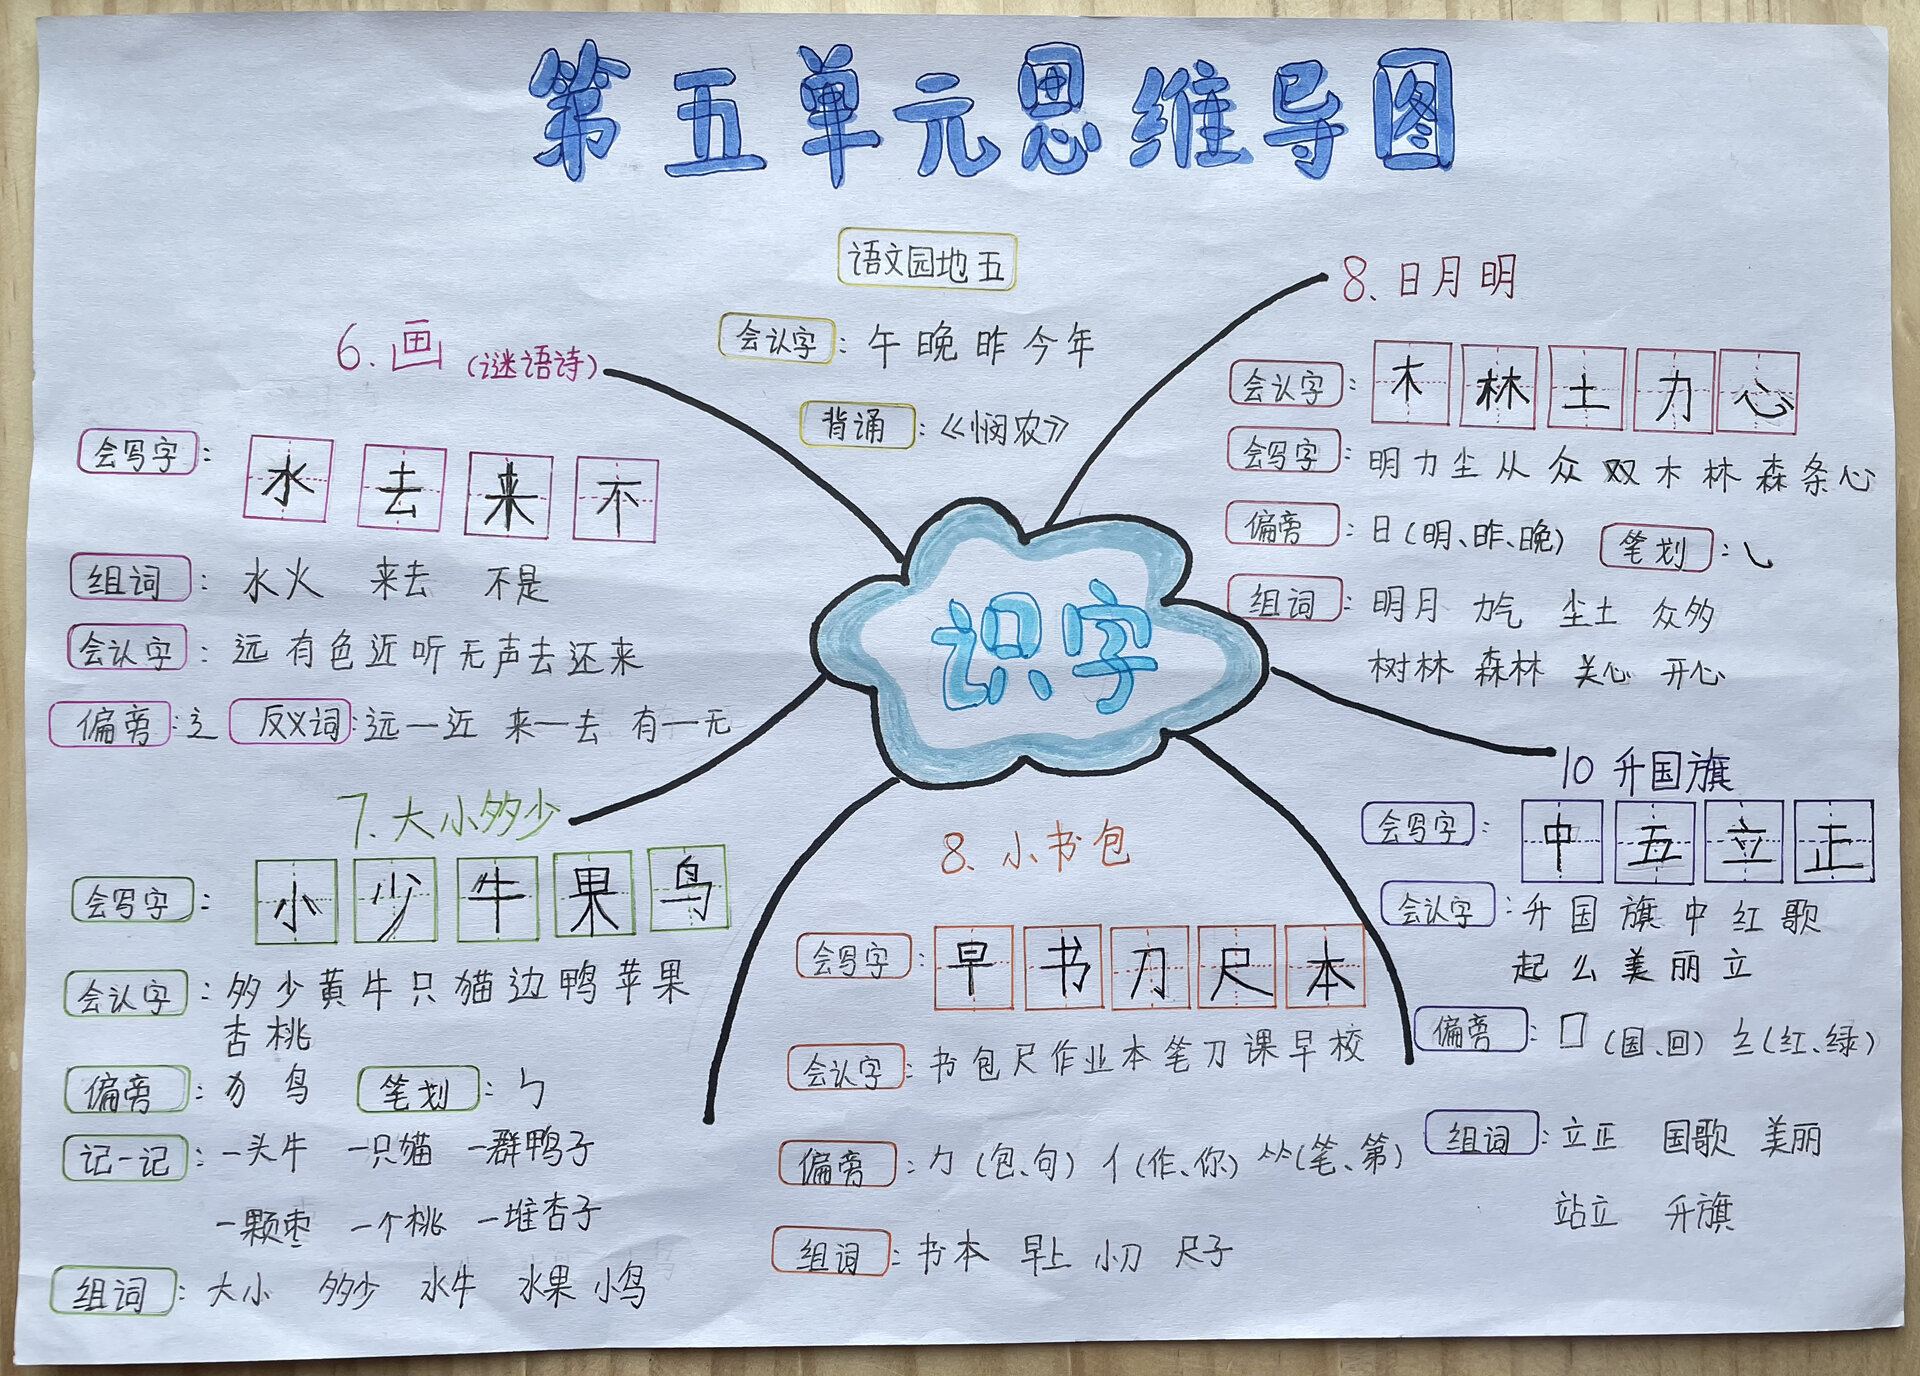 第五单元思维导图
语文园地五
会认字：午 晚 昨 今 年
背诵：《悯农》
识字
6.画（谜语诗）
会写字：水 去 来 不
组词：水火 来去 不是
会认字：远有色近听无声去还来
偏旁：辶 反义词：远—近 来—去 有—无
7.大小多少
会写字：小 少 牛 果 鸟
会认字：多少黄牛只猫边鸭苹果
杏桃
偏旁：犭 鸟 笔划：ㄅ
记一记：一头牛 一只猫 一群鸭子
一颗枣 一个桃 一堆杏子
组词：大小 多少 水牛 水果 小鸟
8.小书包
会写字：早 书 刀 尺 本
会认字：书包尺作业本笔刀课早校
偏旁：勹（包、句） 亻（作、你） ⺮（笔、第）
组词：书本 早上 小刀 尺子
8、日月明
会认字：木 林 土 力 心
会写字：明力尘从众双木林森条心
偏旁：日（明、昨、晚） 笔划：㇃
组词：明月 力气 尘土 众多
树林 森林 关心 开心
10 升国旗
会写字：中 五 立 正
会认字：升国旗中红歌
起么美丽立
偏旁：囗（国、回） 纟（红、绿）
组词：立正 国歌 美丽
站立 升旗